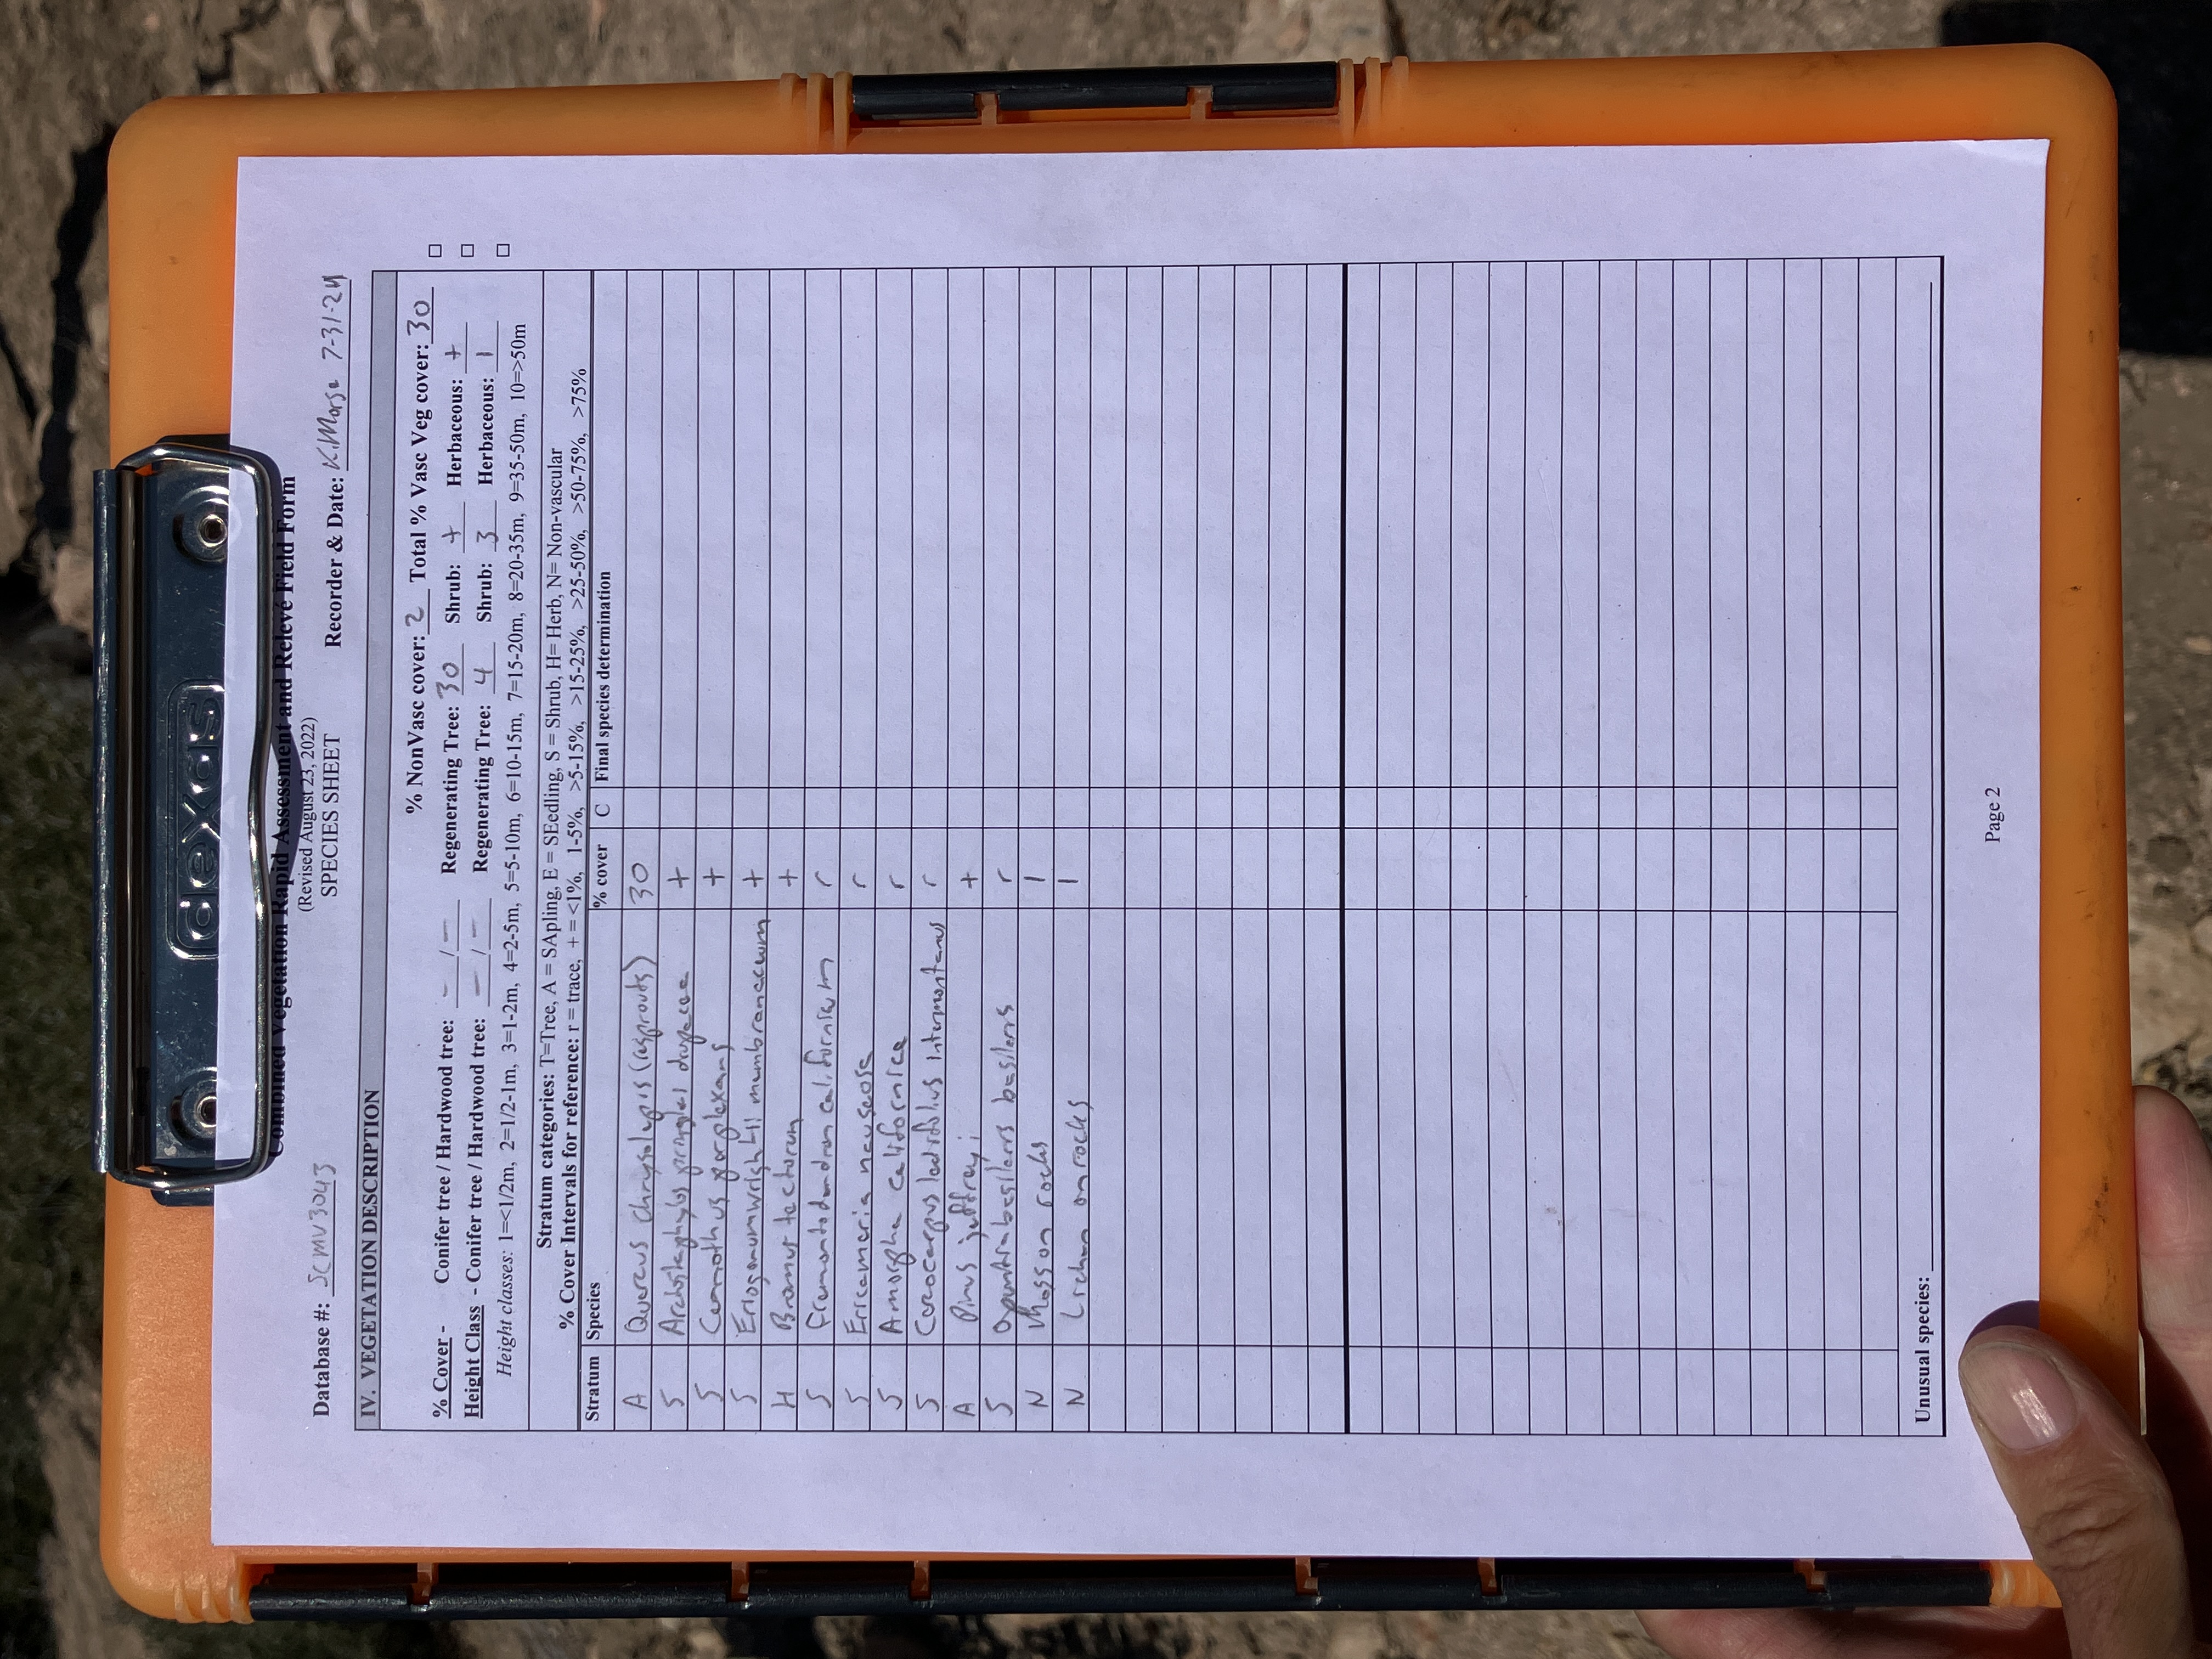 dexas
Combined Vegetation Rapid Assessment and Relevé Field Form
(Revised August 23, 2022)
SPECIES SHEET
Database #: SCMV3043 Recorder & Date: K.Morse 7-31-24
IV. VEGETATION DESCRIPTION
% NonVasc cover: 2 Total % Vasc Veg cover: 30
% Cover - Conifer tree / Hardwood tree: - / - Regenerating Tree: 30 Shrub: + Herbaceous: + □
Height Class - Conifer tree / Hardwood tree: - / - Regenerating Tree: 4 Shrub: 3 Herbaceous: 1 □
Height classes: 1=<1/2m, 2=1/2-1m, 3=1-2m, 4=2-5m, 5=5-10m, 6=10-15m, 7=15-20m, 8=20-35m, 9=35-50m, 10=>50m □
Stratum categories: T=Tree, A = SApling, E = SEedling, S = Shrub, H= Herb, N= Non-vascular
% Cover Intervals for reference: r = trace, + = <1%, 1-5%, >5-15%, >15-25%, >25-50%, >50-75%, >75%
Stratum Species % cover C Final species determination
A Quercus chrysolepis (resprouts) 30
S Arctostaphylos pringlei drupacea +
S Ceanothus perplexans +
S Eriogonum wrightii membranaceum +
H Bromus tectorum +
S Fremontodendron californicum r
S Ericameria nauseosa r
S Amorpha californica r
S Cercocarpus ledifolius intermontanus r
A Pinus jeffreyi +
S Opuntia basilaris basilaris r
N Moss on rocks 1
N Lichen on rocks 1
Unusual species:
Page 2